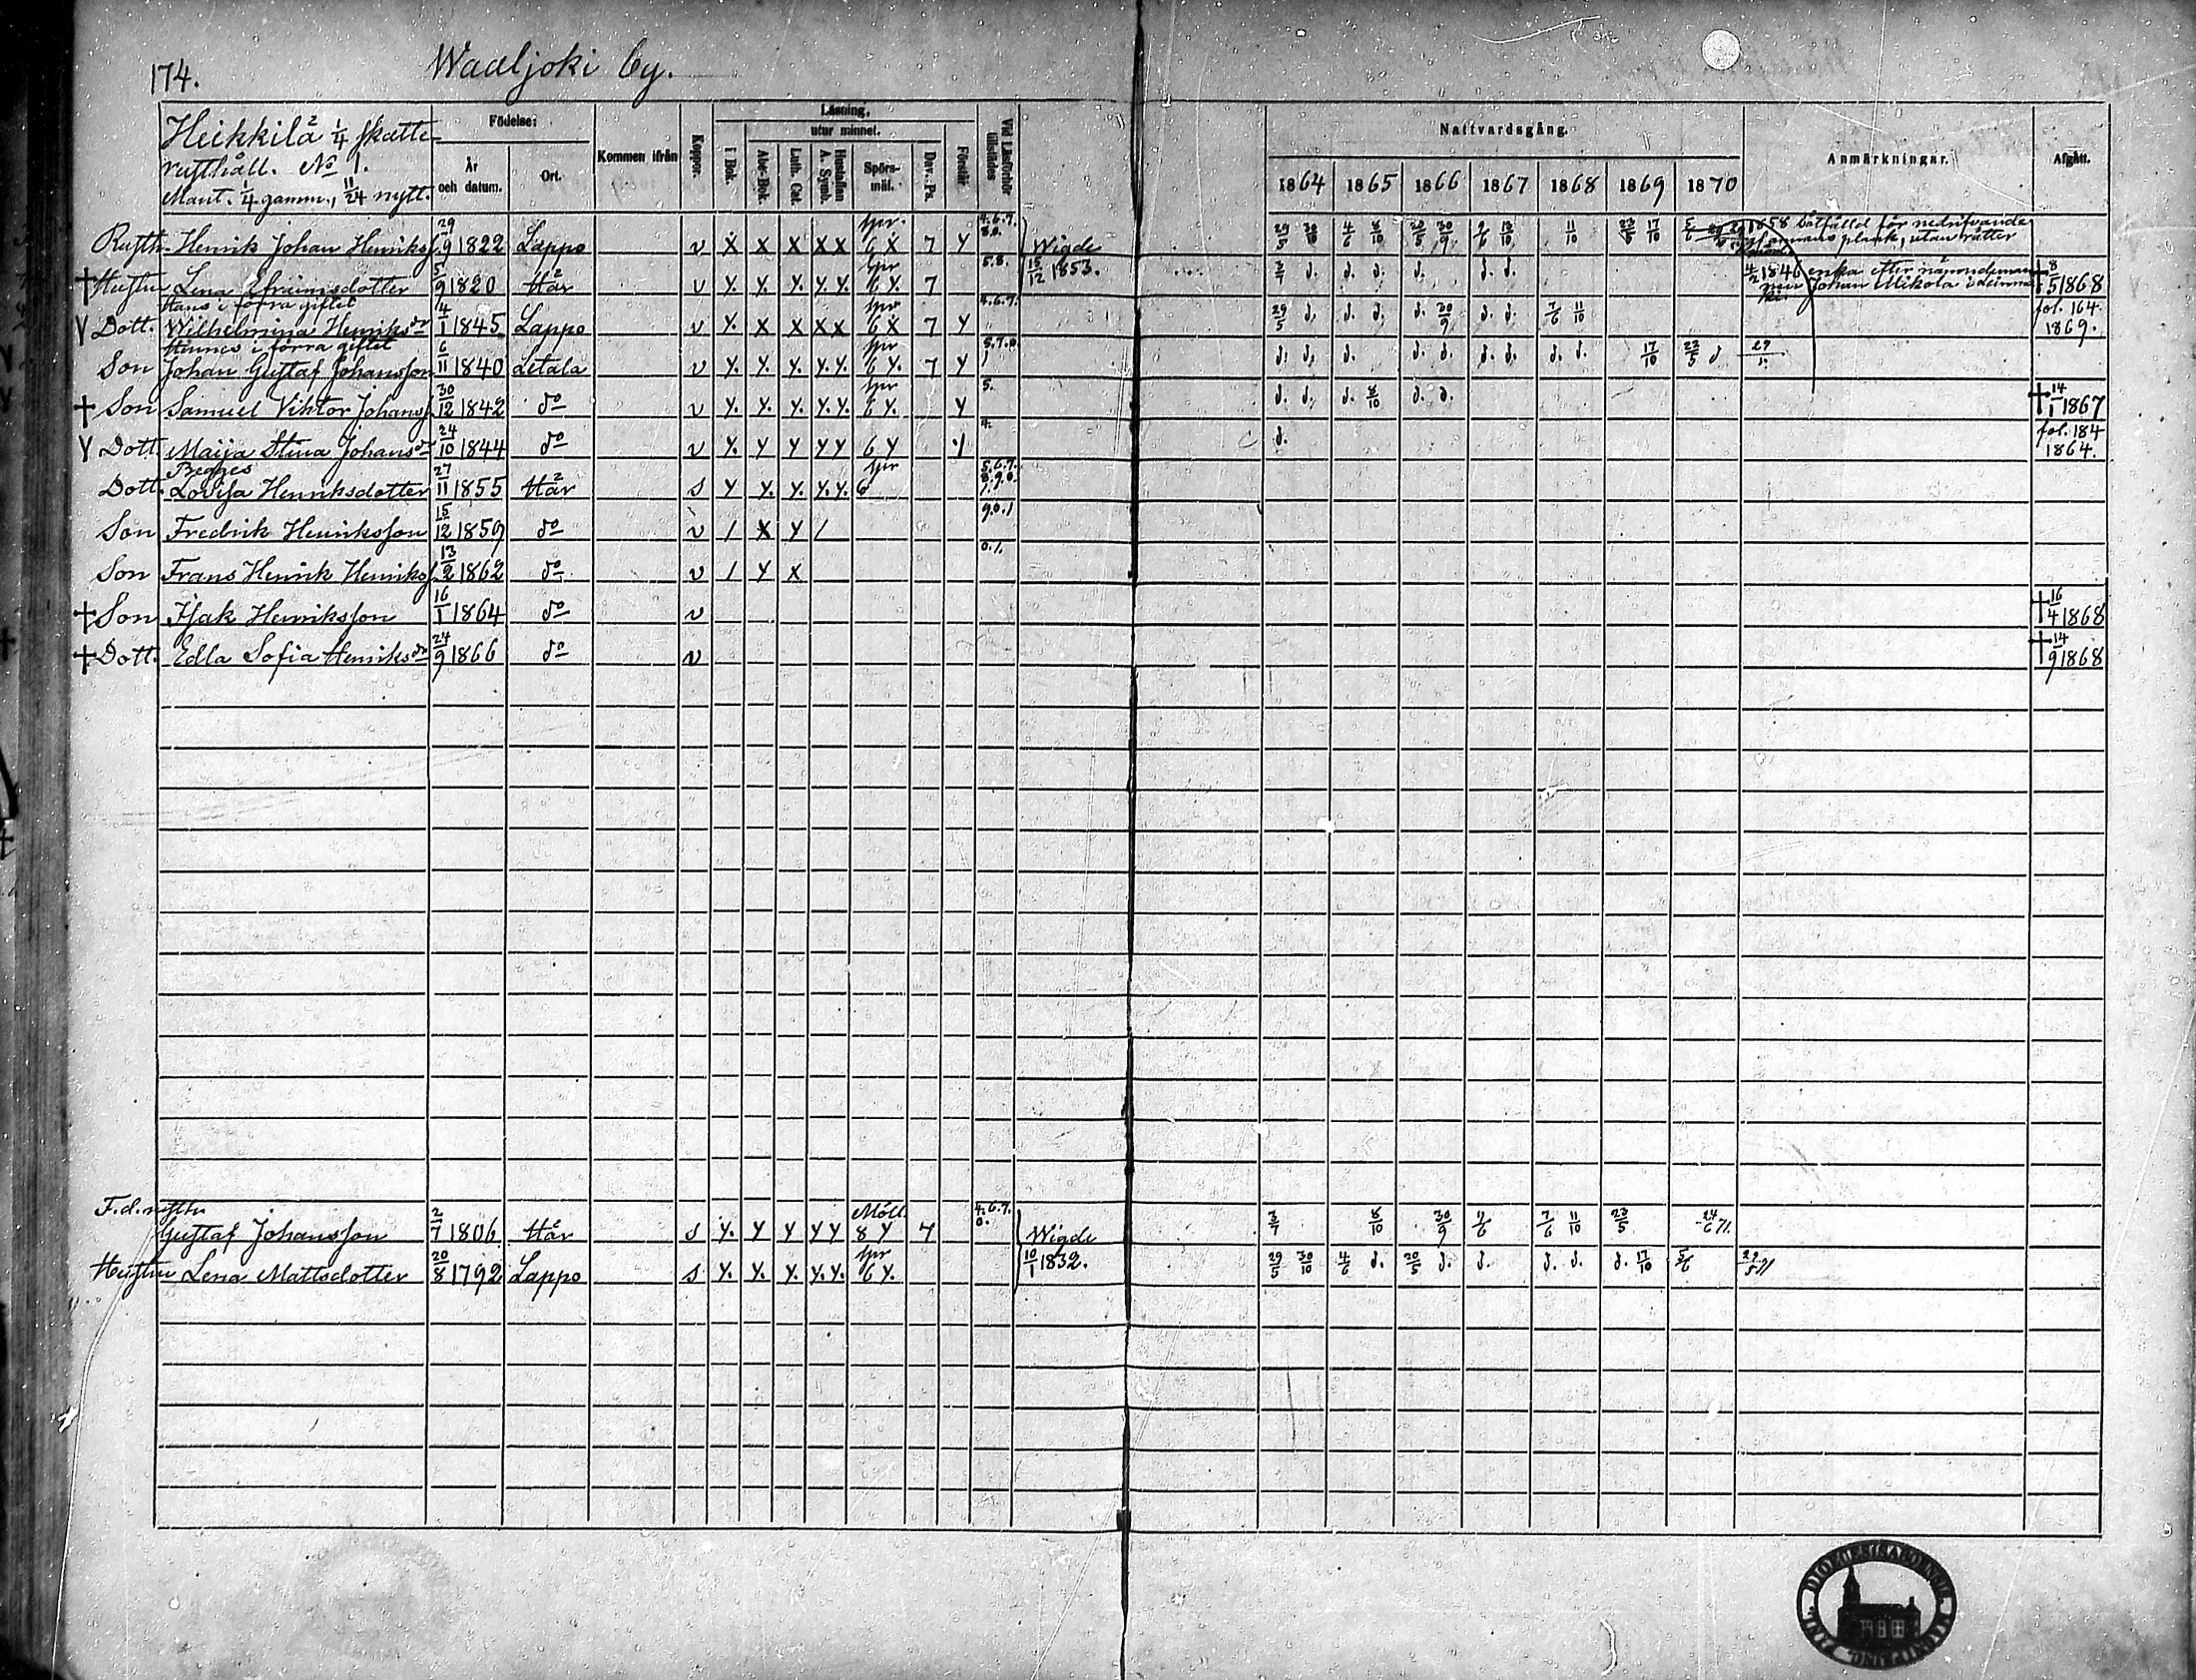 174.
Wadljoki by.
Heikkilä 1/4 skatte
rusthåll. No 1.
Mant. 1/4 gamm., 11/24 nytt.
Födelse:
År och datum.
Ort.
Kommen ifrån
Koppor.
Läsning,
utur minnet.
I Bok.
Abet-Bok.
Luth. Cat.
Hustaflan A. Symb.
Spörs-mål.
Dav. Ps.
Förstår
Vid Läsförhör tillstädes
Nattvardsgång.
1864 1865 1866 1867 1868 1869 1870
Anmärkningar.
Afgått.
Rusth. Henrik Johan Henrikss. 29/9 1822 Lappo v X X X X X spr. 6 X 7 Y 4.6.7. 8.0. Wigde 29/5 30/10 4/6 8/10 20/5 30/9 9/6 13/10 11/10 23/5 17/10 5/6 1858 bötfälld för
plank, utan rätter
† Hustru Lena Efraimsdotter 5/9 1820 Hår v Y. Y. Y. Y. Y. spr 6 Y. 7 5.8. 15/12 1853. 3/7 d. d. d. d. d. d. 4/2 1846 enka efter nämndeman
Johan Mikola i † 8/5 1868
Hans i förra giftet
V Dott. Wilhelmina Henriksdr 4/1 1845 Lappo v Y. X X X X spr 6 X 7 Y 4.6.7. 29/5 d. d. d. d. 30/9 d. d. 7/6 11/10 fol. 164. 1869.
Hennes i förra giftet
Son Johan Gustaf Johansson 6/11 1840 Letala v Y. Y. Y. Y. Y. spr 6 Y. 7 Y 5.7.0. 1 d. d. d. d. d. d. d. d. d. 17/10 23/5 d 29/
† Son Samuel Viktor Johanss. 30/12 1842 do v Y. Y. Y. Y. Y. spr 6 Y. Y 5. d. d. d. 8/10 d. d. † 14/1 1867
V Dott. Maija Stina Johansdr 24/10 1844 do v Y. Y Y Y Y 6 Y Y 4. d. fol. 184 1864.
Begges
Dott. Lovisa Henriksdotter 27/11 1855 Hår s Y Y. Y. Y. Y. spr 6 5.6.7. 8.9.0. 1.
Son Fredrik Henriksson 15/12 1859 do v / X Y / 9.0.1
Son Frans Henrik Henrikss. 13/2 1862 do v / Y X 0.1.
† Son Isak Henriksson 16/1 1864 do v † 16/4 1868
† Dott. Edla Sofia Henriksdr 24/9 1866 do v † 14/9 1868
F.d. rusth.
Gustaf Johansson 2/7 1806 Hår s Y. Y Y Y Y Möll. 8 Y 7 4.6.7. 0. Wigde 3/7 8/10 30/9 9/6 7/6 11/10 23/5 24/6 71.
Hustru Lena Mattsdotter 20/8 1792 Lappo s Y. Y. Y. Y. Y. spr 6 Y. 10/1 1832. 29/5 30/10 4/6 d. 20/5 d. d. d. d. d. 17/10 5/6 29/5 71